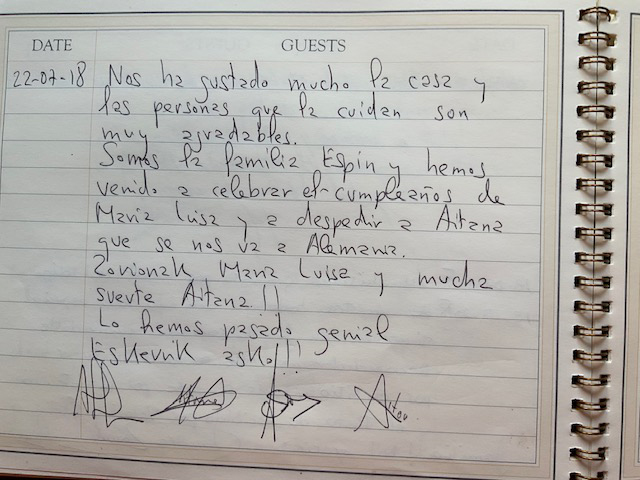 DATE GUESTS
22-07-18 Nos ha gustado mucho la casa y
las personas que la cuidan son
muy agradables.
Somos la familia Espin y hemos
venido a celebrar el cumpleaños de
Maria Luisa y a despedir a Aitana
que se nos va a Alemania.
Zorionak Maria Luisa y mucha
suerte Aitana!!
Lo hemos pasado genial
Eskerrik asko!!!